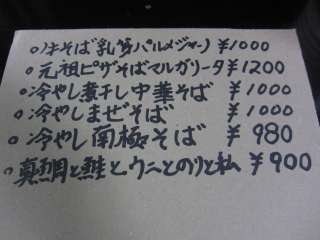 ○汁そば乳首パルメジャーノ ¥1000
○元祖ピザそばマルガリータ¥1200
○冷やし煮干し中華そば ¥1000
○冷やしまぜそば ¥1000
○冷やし南極そば ¥980
○真鯛と鮭と、ウニとのりと私 ¥900